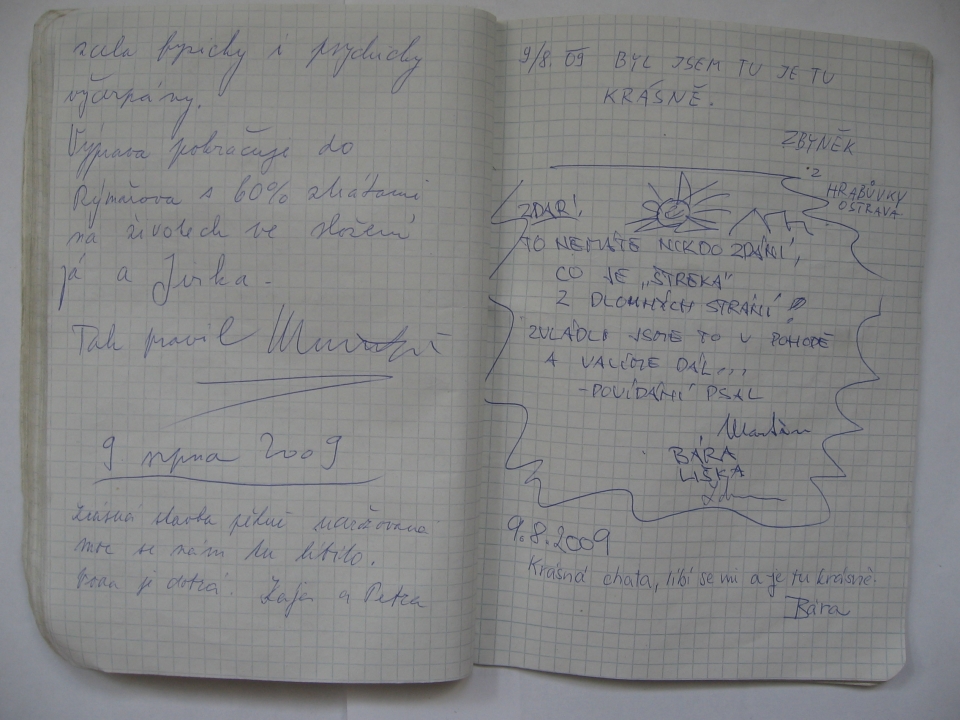 zcela fyzicky i psychicky
vyčerpány.
Výprava pokračuje do
Rýmařova s 60% ztrátami
na životech ve složení
já a Jirka.
Tak pravil
9 srpna 2009
stavba pěkně udržovaná
moc se nám tu líbilo.
je dobrá. a Petra
9/8. 09 BYL JSEM TU JE TU
KRÁSNĚ.
ZBYNĚK
Z
HRABŮVKY
OSTRAVA
ZDAR!
TO NEMÁTE NIKDO ZDÁNÍ,
CO JE „ŠTREKA"
Z DLOUHÝCH STRÁNÍ
ZVLÁDLI JSME TO V POHODĚ
A VALÍME DÁL...
-POVÍDÁNÍ PSAL
Martin
BÁRA
LIŠKA
9.8.2009
Krásná chata, líbí se mi a je tu krásně.
Bára